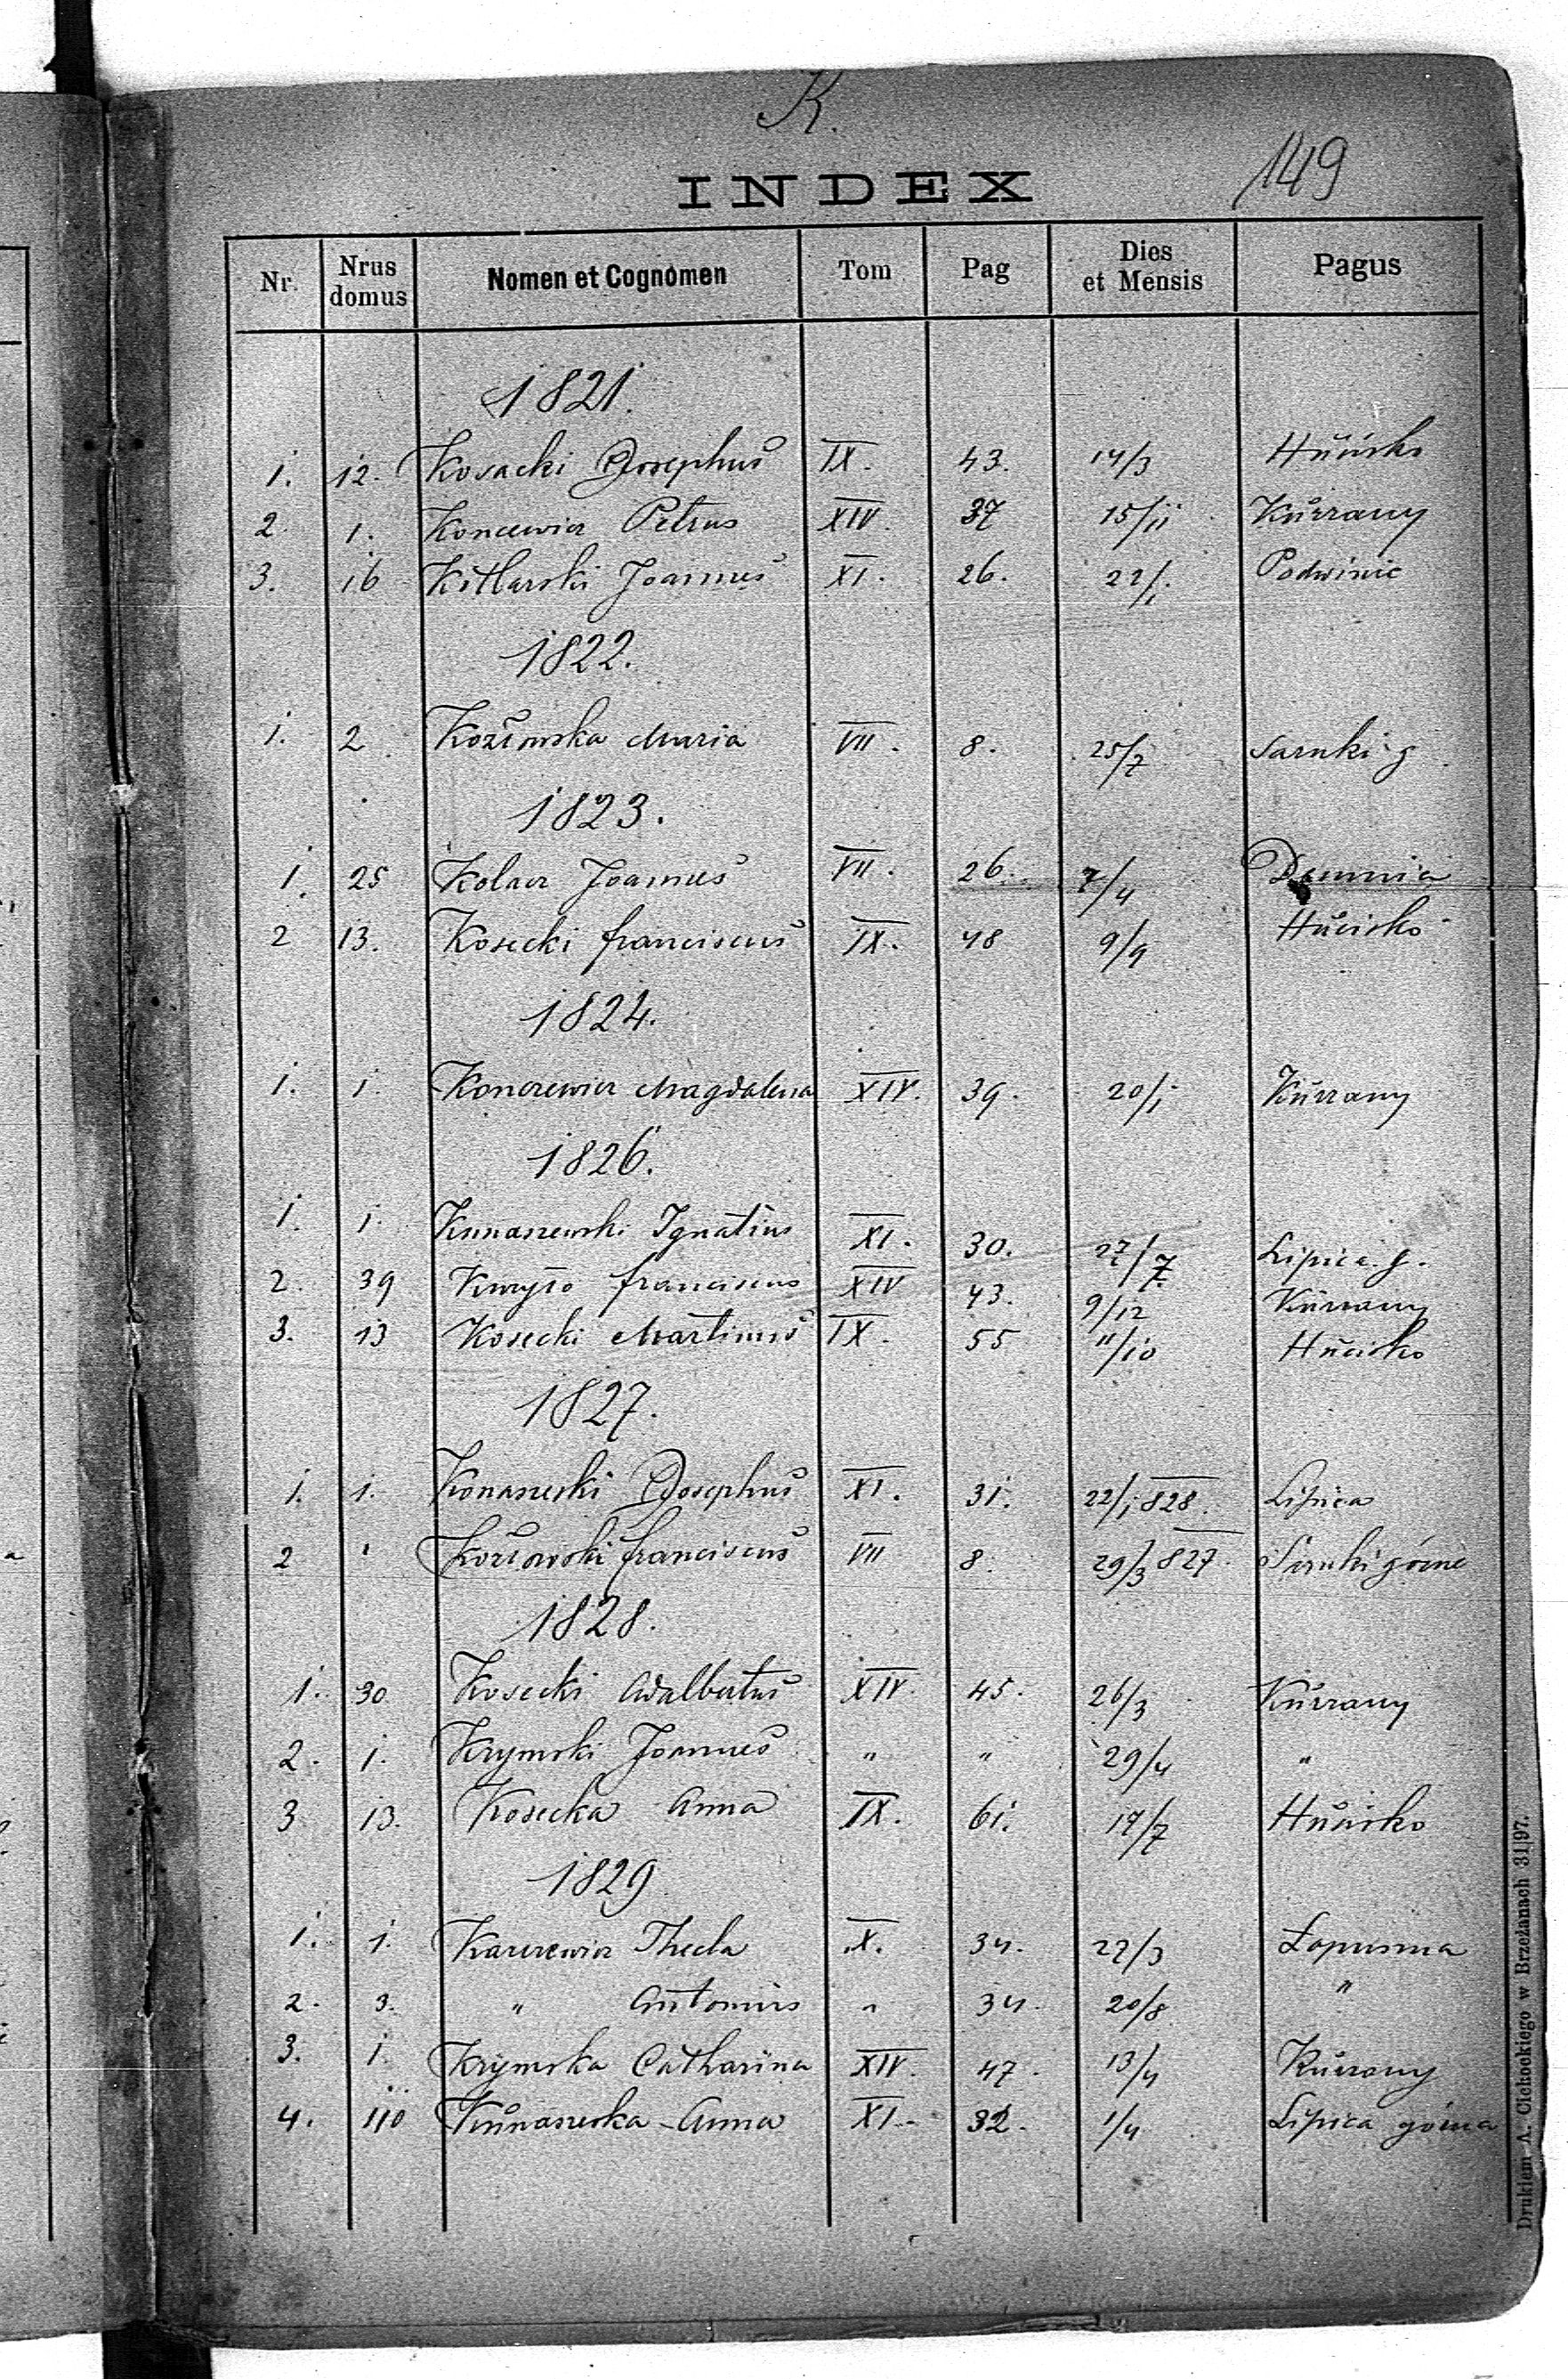 K.
149
INDEX
Nr. Nrus domus Nomen et Cognomen Tom Pag Dies et Mensis Pagus
1821.
1. 12. Kosacki Josephus IX. 43. 14/3 Hucisko
2 1. Koncewicz Petrus XIV. 37 15/11 Kurzany
3. 16 Kitlarski Joannes XI. 26. 22/1 Podwinie
1822.
1. 2 Kozłowska Maria VII. 8. 25/7 Sarnki g
1823.
1. 25 Kolacz Joannes VII. 26. 7/4 Demnia
2 13. Kosecki Franciscus IX. 48 9/9 Hucisko
1824.
1. 1. Konczewicz Magdalena XIV. 39. 20/1 Kurzany
1826.
1. 1. Kunaszewski Ignatius XI. 30. 27/7 Lipica g.
2. 39 Franciscus XIV 43. 9/12 Kurzany
3. 13 Kosecki Martinus IX. 55 11/10 Hucisko
1827.
1. 1. Konaszeski Josephus XI. 31. 22/1 828. Lipica
2 " Kozłowski Franciscus VII 8. 29/3 827. Sarnki górne
1828.
1. 30 Kosecki Adalbertus XIV. 45. 26/3 Kurzany
2. 1. Krymski Joannes " " 29/4 "
3 13. Kosecka Anna IX. 61. 17/7 Hucisko
1829
1. 1. Karczewicz Thecla X. 34. 27/3 Łopuszna
2. 3. " Antonius " 34. 20/8 "
3. 1. Krymska Catharina XIV. 47. 13/4 Kurzany
4. 110 Kunaszeska Anna XI. 32. 1/4 Lipica górna
Drukiem A. Cichockiego w Brzeżanach 31|97.